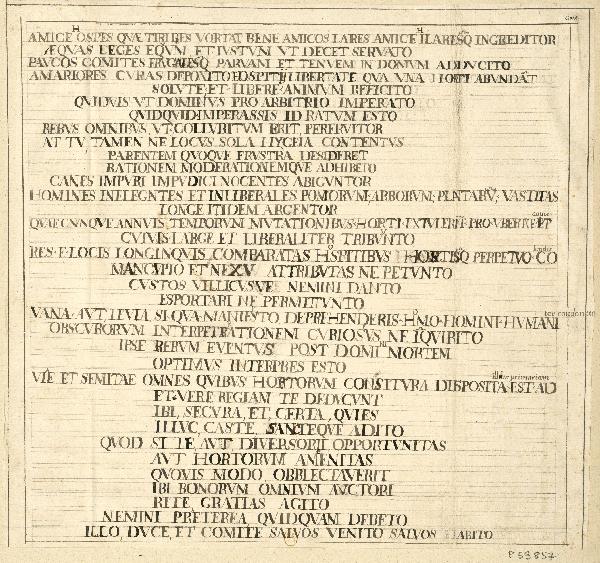 AMICE OSPES QVÆ TIBI RES VORTAT BENE AMICOS LARES AMICE ILARESQ INGREDITOR
ÆQVAS LEGES EQVM ET IVSTVM VT DECET SERVATO
PAVCOS COMITES FRVGALESQ PARVAM ET TENVEM IN DOMVM ADDVCITO
AMARIORES CVRAS DEPOVITO LIBERTATE QVA VNA ABVNDAT
SOLVTE ET LIBERE ANIMVM REFICITO
QVIDVIS VT DOMINVS PRO ARBITRIO IMPERATO
QVIDQVID IMPERASSIS ID RATVM ESTO
REBVS OMNIBVS VT COLLVBITVM ERIT PERFRVITOR
AT TV TAMEN NE LOCVS SOLA HYGEIA CONTENTVS
PARENTEM QVOQVE FRVSTRA DESIDERET
RATIONEM MODERATIONEMQVE ADHIBETO
CANES IMPVRI IMPVDICI NOCENTES ABIGVNTOR
HOMINES INELEGNTES ET INLIBERALES POMORVM ARBORVM PLNTARV VASTITAS
LONGE ITIDEM ARGENTOR
QVAECVNQVE ANNVIS TEMPORVM MVTATIONIBVS HORTI PRO VBERTE ET
CVIVIS LARGE ET LIBERALITER TRIBVNTO
RES E LOCIS LONGINQVIS COMPARATAS HSPITIBVS HORTISQ PERPETVO CO
MANCVPIO ET NEXV ATTRIBVTAS NE PETVNTO
CVSTOS VILLICVSVE NEMINI DANTO
ESPORTARI NE PERMITVNTO
VANA AVT LEVIA SI QVA MANIFESTO DEPREHENDERIS HMO HOMINI HVMANI
OBSCVRORVM INTERPETRATIONEM CVRIOSVS NE IQVIRITO
IPSE RERVM EVENTVS POST DOMINI MORTEM
OPTIMVS INTERPRES ESTO
VIE ET SEMITAE OMNES QVIBVS HORTORVM CONSITVRA DISPOSITA EST AD
ET VERE REGIAM TE DEDVCVNT
IBI SECVRA ET CERTA QVIES
ILLVC CASTE SANCTEQVE ADITO
QVOD SI TE AVT DIVERSORII OPPORTVNITAS
AVT HORTORVM AMENITAS
QVOVIS MODO OBBLECTAVERIT
IBI BONORVM OMNIVM AVCTORI
RITE GRATIAS AGITO
NEMINI PRETEREA QVIDQVAM DEBETO
ILLO DVCE ET COMITE SALVOS VENITO SALVOS HABITO
P 53857